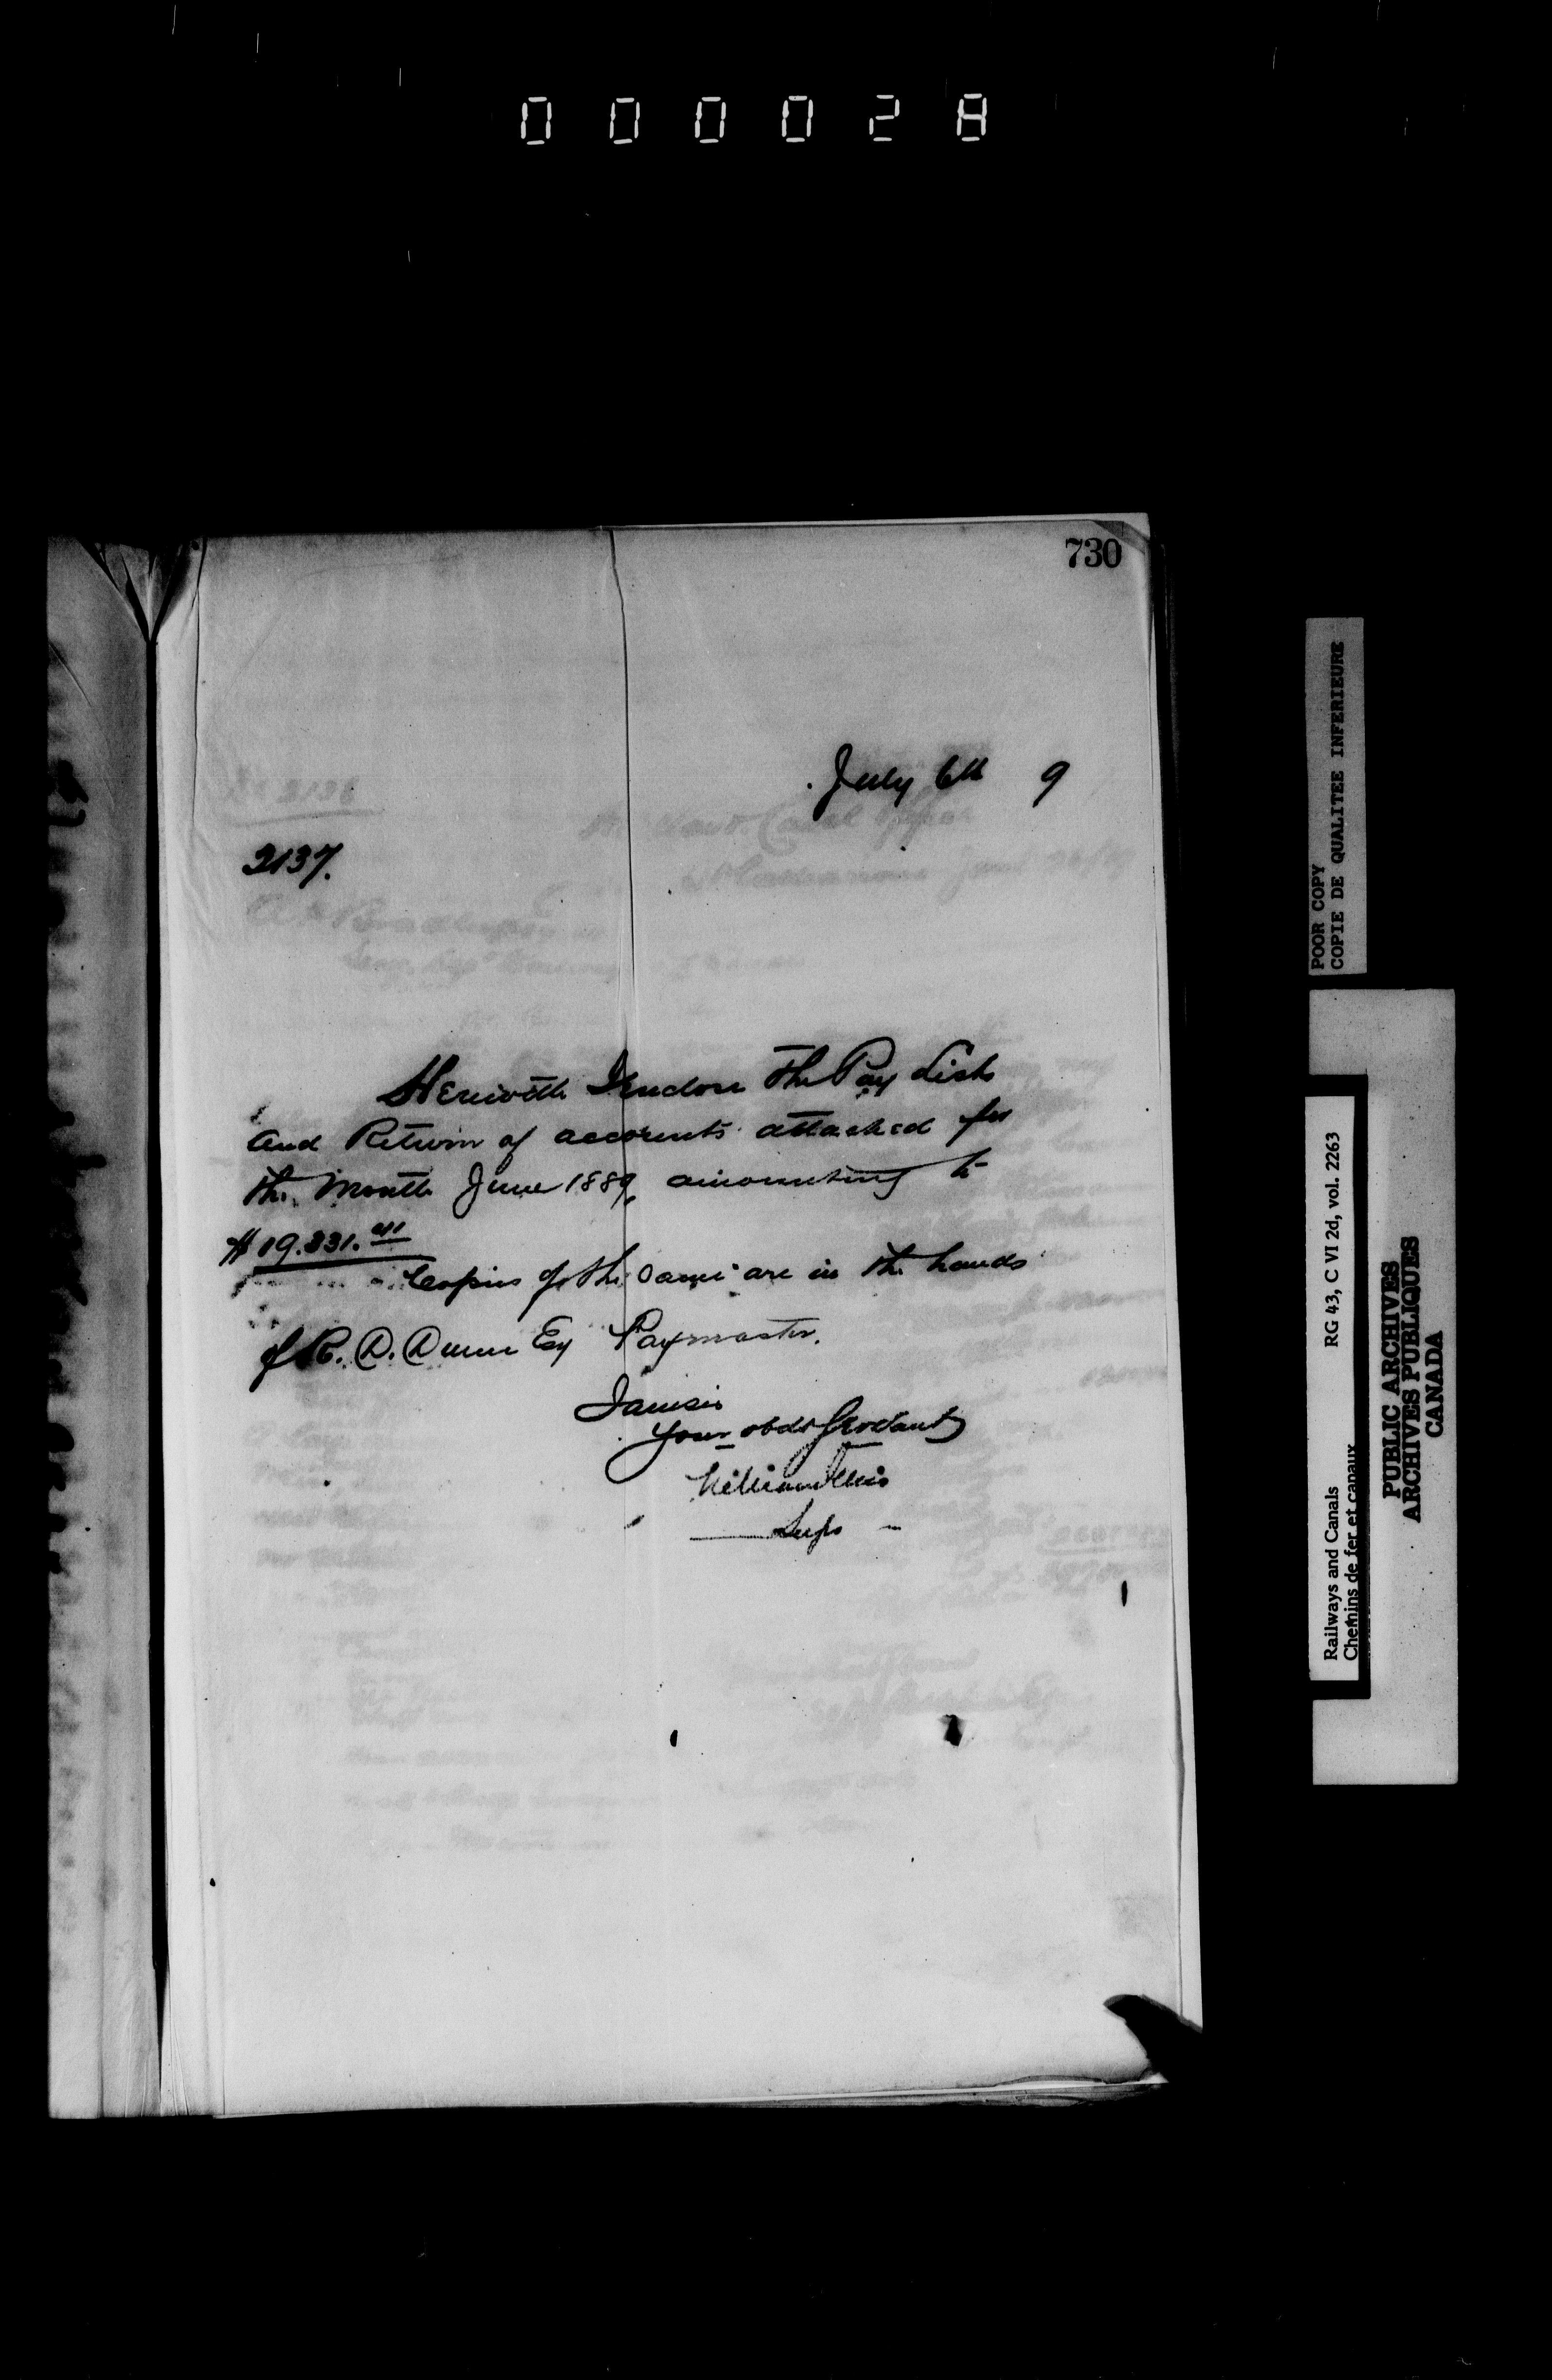 000028
730
July 6th 9
2137.
Herewith I enclose The Pay Lists
and Return of accounts attached for
the Month June 1889, amounting to
$19.331.41
Copies of the same are in the hands
of R. D. Dunn Esq Paymaster.
I am Sir
Your obdt Servant
William Ellis
Supt
POOR COPY
COPIE DE QUALITEE INFERIEURE
RG 43, C VI 2d, vol. 2263
Railways and Canals
Chemins de fer et canaux
PUBLIC ARCHIVES
ARCHIVES PUBLIQUES
CANADA